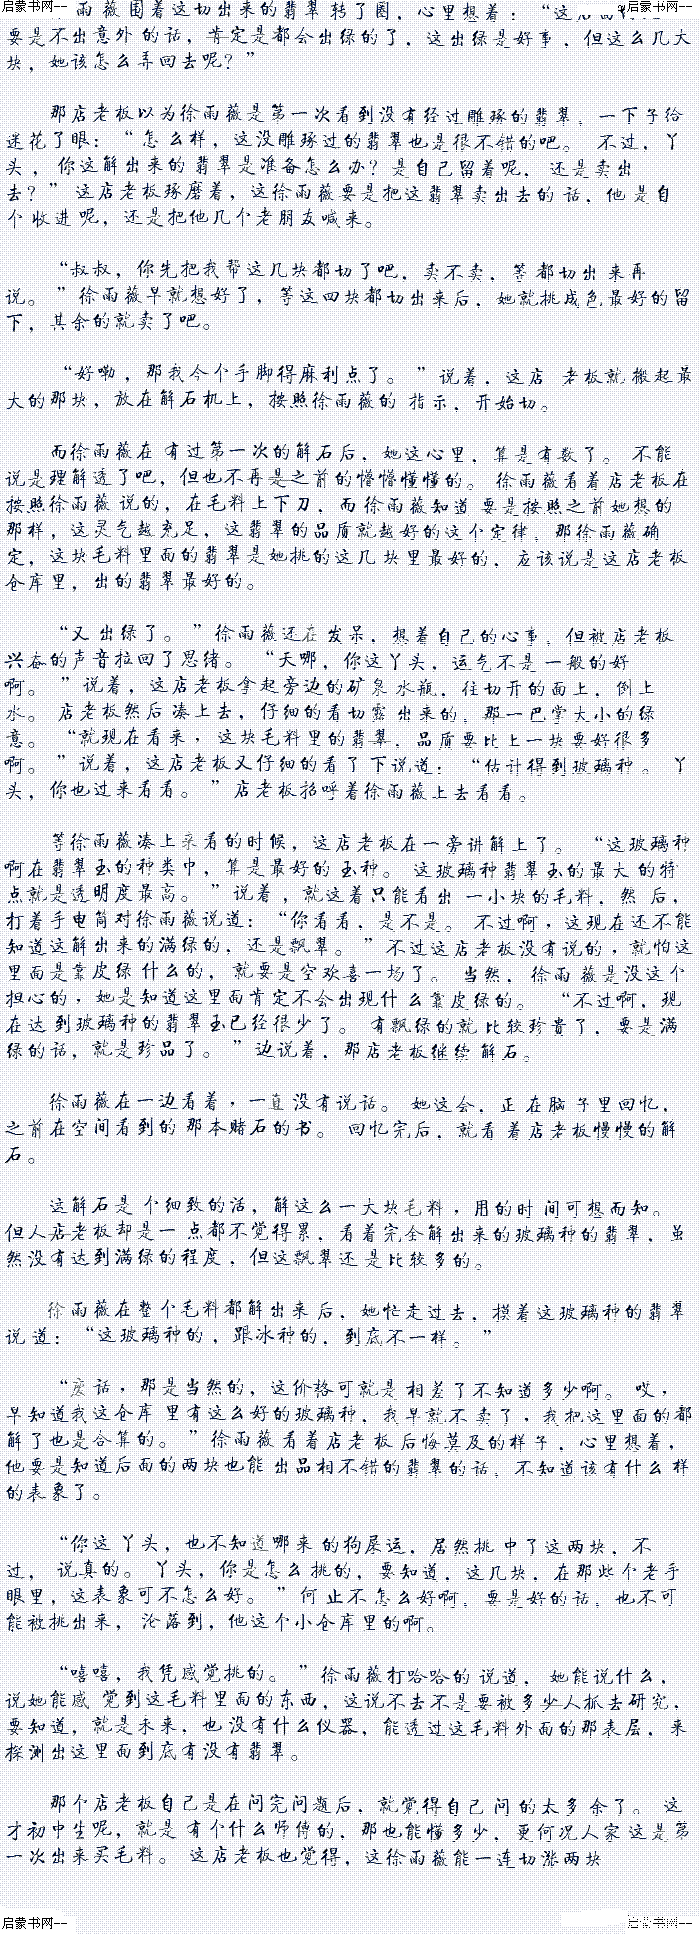 启蒙书网--
启蒙书网--
雨薇围着这切出来的翡翠转了圈，心里想着：“这
要是不出意外的话，肯定是都会出绿的了，这出绿是好事，但这么几大
块，她该怎么弄回去呢？”
那店老板以为徐雨薇是第一次看到没有经过雕琢的翡翠，一下子给
迷花了眼：“怎么样，这没雕琢过的翡翠也是很不错的吧。 不过，丫
头，你这解出来的翡翠是准备怎么办？是自己留着呢，还是卖出
去？”这店老板琢磨着，这徐雨薇要是把这翡翠卖出去的话，他是自
个收进呢，还是把他几个老朋友喊来。
“叔叔，你先把我帮这几块都切了吧，卖不卖，等都切出来再
说。”徐雨薇早就想好了，等这四块都切出来后，她就挑成色最好的留
下，其余的就卖了吧。
“好嘞，那我今个手脚得麻利点了。”说着，这店 老板就搬起最
大的那块，放在解石机上，按照徐雨薇的 指示，开始切。
而徐雨薇在有过第一次的解石后，她这心里，算是有数了。 不能
说是理解透了吧，但也不再是之前的懵懵懂懂的。 徐雨薇看着店老板在
按照徐雨薇说的，在毛料上下刀，而徐雨薇知道要是按照之前她想的
那样，这灵气越充足，这翡翠的品质就越好的这个定律，那徐雨薇确
定，这块毛料里面的翡翠是她挑的这几块里最好的，应该说是这店老板
仓库里，出的翡翠最好的。
“又出绿了。”徐雨薇还在发呆，想着自己的心事，但被店老板
兴奋的声音拉回了思绪。 “天哪，你这丫头，运气不是一般的好
啊。”说着，这店老板拿起旁边的矿泉水瓶，往切开的面上，倒上
水。 店老板然后凑上去，仔细的看切露出来的，那一巴掌大小的绿
意。 “就现在看来，这块毛料里的翡翠，品质要比上一块要好很多
啊。”说着，这店老板又仔细的看了下说道：“估计得到玻璃种。 丫
头，你也过来看看。”店老板招呼着徐雨薇上去看看。
等徐雨薇凑上来看的时候，这店老板在一旁讲解上了。 “这玻璃种
啊在翡翠玉的种类中，算是最好的玉种。 这玻璃种翡翠玉的最大的特
点就是透明度最高。”说着，就这着只能看出一小块的毛料，然 后，
打着手电筒对徐雨薇说道：“你看看，是不是。 不过啊，这现在还不能
知道这解出来的满绿的，还是飘翠。”不过这店老板没有说的，就怕这
里面是靠皮绿什么的，就要是空欢喜一场了。 当然，徐雨薇是没这个
担心的，她是知道这里面肯定不会出现什么靠皮绿的。 “不过啊，现
在达到玻璃种的翡翠玉已经很少了。 有飘绿的就比较珍贵了，要是满
绿的话，就是珍品了。”边说着，那店老板继续解石。
徐雨薇在一边看着，一直没有说话。 她这会，正在脑子里回忆，
之前在空间看到的那本赌石的书。 回忆完后，就看着店老板慢慢的解
石。
这解石是个细致的活，解这么一大块毛料，用的时间可想而知。
但人店老板却是一点都不觉得累，看着完全解出来的玻璃种的翡翠，虽
然没有达到满绿的程度，但这飘翠还是比较多的。
徐雨薇在整个毛料都解出来后，她忙走过去，摸着这玻璃种的翡翠
说道：“这玻璃种的，跟冰种的，到底不一样。”
“废话，那是当然的，这价格可就是相差了不知道多少啊。 哎，
早知道我这仓库里有这么好的玻璃种，我早就不卖了，我把这里面的都
解了也是合算的。”徐雨薇看着店老板后悔莫及的样子，心里想着，
他要是知道后面的两块也能出品相不错的翡翠的话，不知道该有什么样
的表象了。
“你这丫头，也不知道哪来的狗屎运，居然挑中了这两块，不
过，说真的。 丫头，你是怎么挑的，要知道，这几块，在那些个老手
眼里，这表象可不怎么好。”何止不怎么好啊，要是好的话，也不可
能被挑出来，沦落到，他这个小仓库里的啊。
“嘻嘻，我凭感觉挑的。”徐雨薇打哈哈的说道，她能说什么，
说她能感觉到这毛料里面的东西，这说不去不是要被多少人抓去研究，
要知道，就是未来，也没有什么仪器，能透过这毛料外面的那表层，来
探测出这里面到底有没有翡翠。
那个店老板自己是在问完问题后，就觉得自己问的太多余了。 这
才初中生呢，就是有个什么师傅的，那也能懂多少，更何况人家这是第
一次出来买毛料。 这店老板也觉得，这徐雨薇能一连切涨两块
启蒙书网--
启蒙书网--